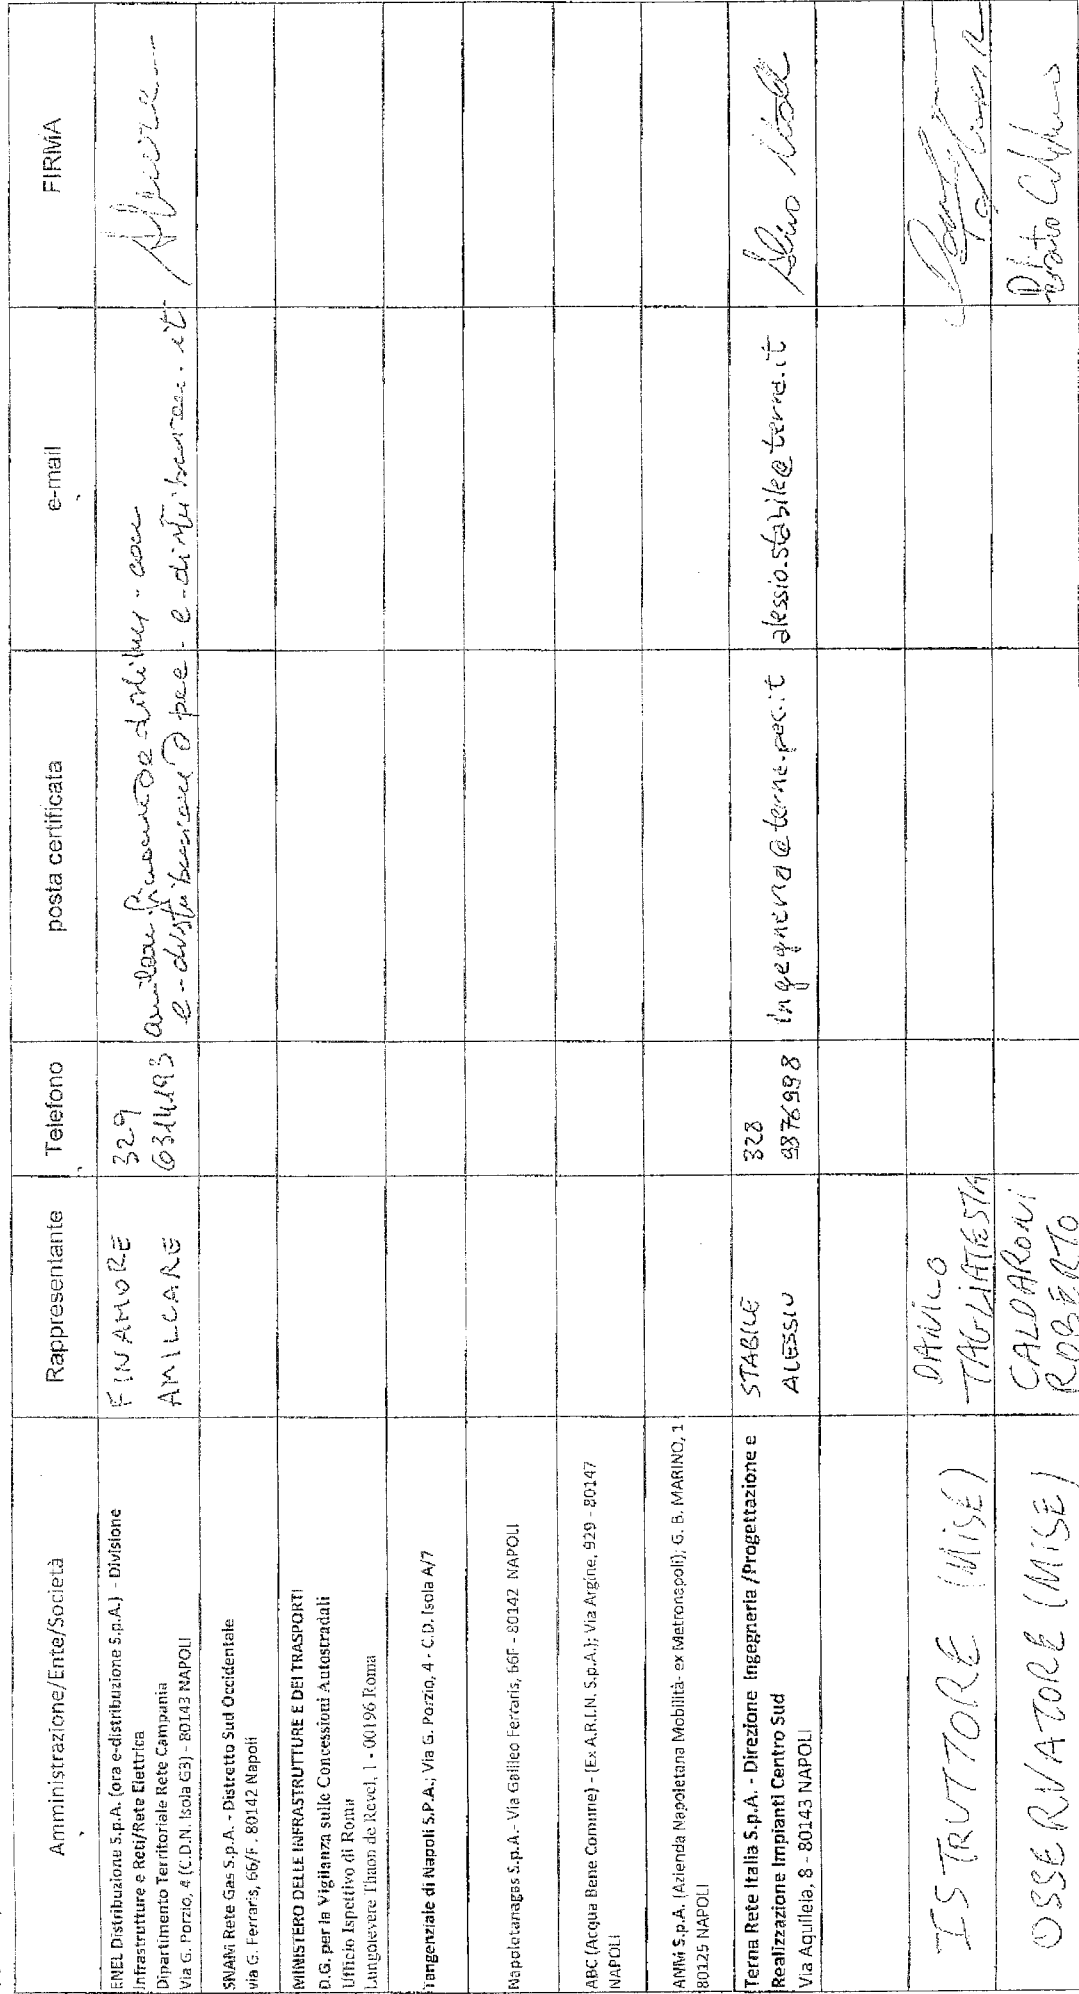 Amministrazione/Ente/Società Rappresentante Telefono posta certificata e-mail FIRMA
ENEL Distribuzione S.p.A. (ora e-distribuzione S.p.A.) - Divisione
Infrastrutture e Reti/Rete Elettrica
Dipartimento Territoriale Rete Campania
Via G. Porzio, 4 (C.D.N. Isola G3) - 80143 NAPOLI
FINAMORE
AMILCARE
329
6314193
e-distribuzione@pec.e-distribuzione.it
SNAM Rete Gas S.p.A. - Distretto Sud Occidentale
via G. Ferraris, 66/F. 80142 Napoli
MINISTERO DELLE INFRASTRUTTURE E DEI TRASPORTI
D.G. per la Vigilanza sulle Concessioni Autostradali
Ufficio Ispettivo di Roma
Lungotevere Thaon de Revel, 1 - 00196 Roma
Tangenziale di Napoli S.P.A.; Via G. Porzio, 4 - C.D. Isola A/7
Napoletanagas S.p.A. - Via Galileo Ferraris, 66F - 80142 NAPOLI
ABC (Acqua Bene Comune) - (Ex A.R.I.N. S.p.A.); Via Argine, 929 - 80147
NAPOLI
ANM S.p.A. (Azienda Napoletana Mobilità- ex Metronapoli); G. B. MARINO, 1
80125 NAPOLI
Terna Rete Italia S.p.A. - Direzione Ingegneria /Progettazione e
Realizzazione Impianti Centro Sud
Via Aquileia, 8 - 80143 NAPOLI
STABILE
ALESSIO
328
9876998
ingegneria@terna.pec.it
alessio.stabile@terna.it
ISTRUTTORE (MISE)
DANILO
TAGLIATESTA
OSSERVATORE (MISE)
CALDARONI
ROBERTO